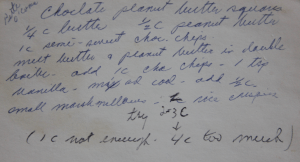 Choclate peanut butter squares
1/4 c butter 1/2 c peanut butter
1 c semi-sweet choc. chips
melt butter & peanut butter in double
boiler. add 1 c cho chips - 1 tsp
vanilla - mix and cool - add 1/2 c.
small marshmallows. rice crispies
try 3 C
(1 c not enough - 4c too much)